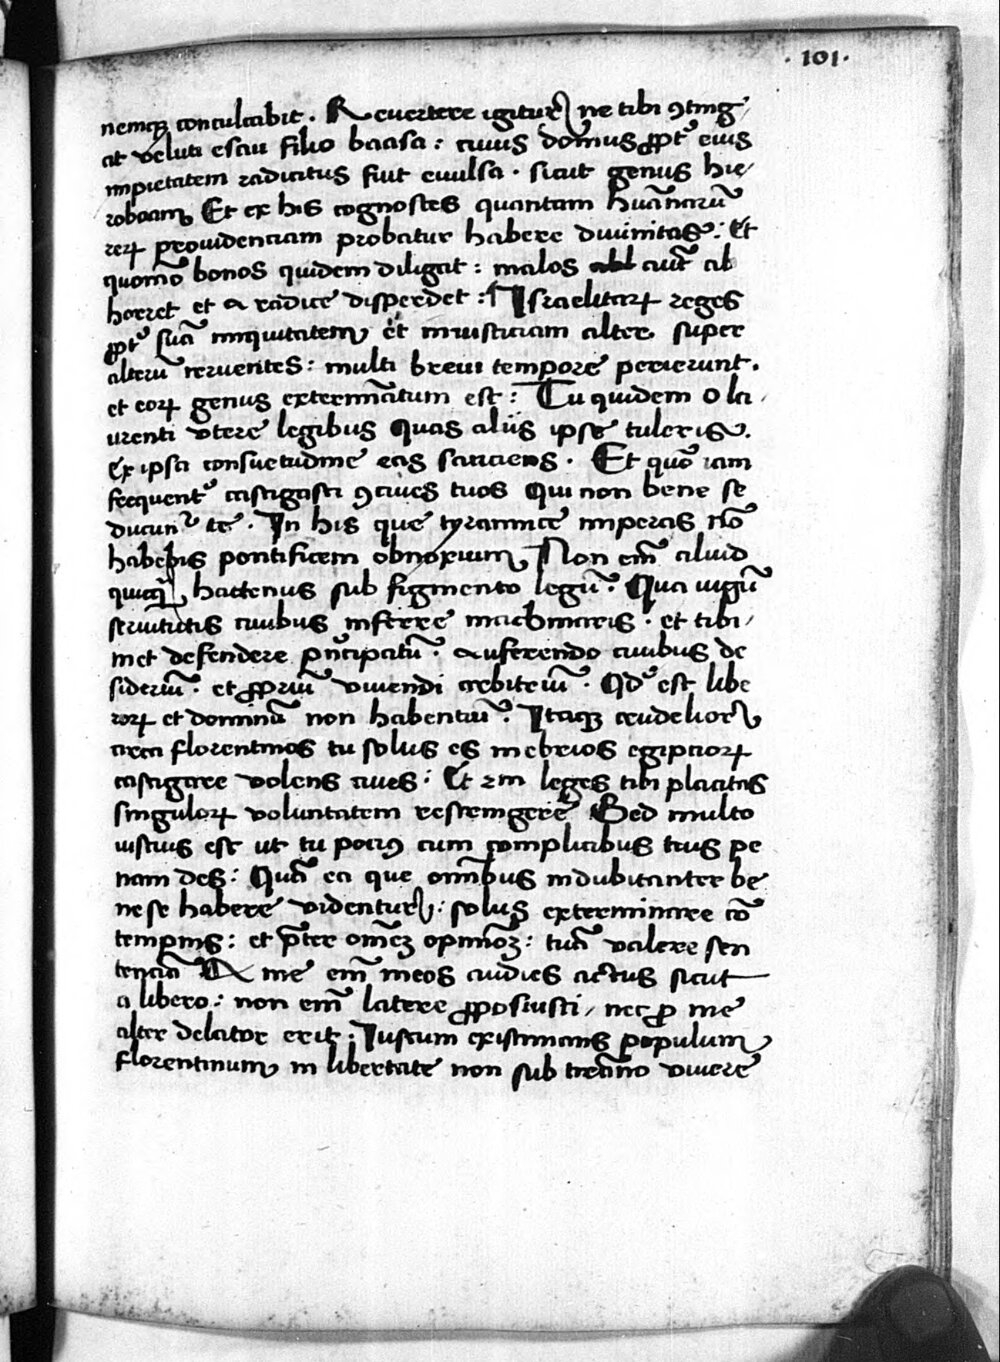 · 101 ·
nemqꝫ conculcabit . Revertere igitur ne tibi ꝯting
at veluti esau filio baasa : cuius domus ꝓpt̃ eius
impietatem radicitus fuit evulsa . sicut genus hie
roboam Et ex his cognosces quantam hũanarũ
reꝝ providenciam probatur habere divinitas : Et
quomõ bonos quidem diligat : malos aut̃ ab
horret et a radice disperdet : Israelitaꝝ reges
ꝓpt̃ suã iniquitatem et iniusticiam alter super
alterũ irruentes : multi brevi tempore perierunt .
et eoꝝ genus extermĩatum est : Tu quidem o la
urenti utere legibus quas aliis ipse tuleris .
Ex ipsa consuetudine eas sanciens . Et quõ iam
frequent̃ castigasti ꝯcives tuos Qui non bene se
ducunt̃ te . In his que tyrannice imperas nõ
habebis pontificem obnoxium Non eñ aliud
quicq̃ hactenus sub figmento legũ . Qua iugũ
servitutis civibus inferre machinaris . et tibi
met defendere pñcipatũ . auferendo civibus de
siderĩũ . et ꝓpriũ vivendi arbitriũ . Qđ est libe
roꝝ et dominũ non habentiũ . Itaqꝫ crudelior
circa florentinos tu solus es in ebreos egiptioꝝ
castigare volens cives : Et im leges tibi placitas
singuloꝝ voluntatem restringere Sed multo
iustius est ut tu pociꝰ cum complicibus tuis pe
nam des : Quã ea que omĩbus indubitanter be
ne se habere videntur : solus exterminare cõ
tempnis : et p̃ter omẽꝫ opiniõꝫ : tuã valere sen
tenciã A me eñ meos audies actus sicut
a libero : non eñ latere ꝓposui sti / nec ꝓ me
alter delator erit : Iustum existimans populum
florentinum in libertate non sub tirãno vivere